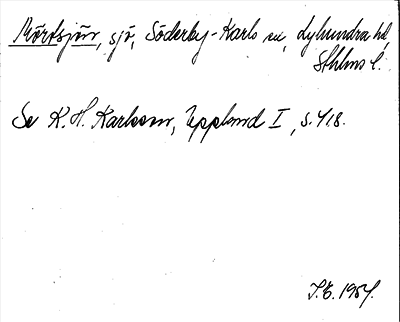 Mörtsjön, sjö, Söderby-Karls sn, Lyhundra hd,
Sthlms l.
Se K. H. Karlsson, Uppland I, s. 418.
J.E. 1954.